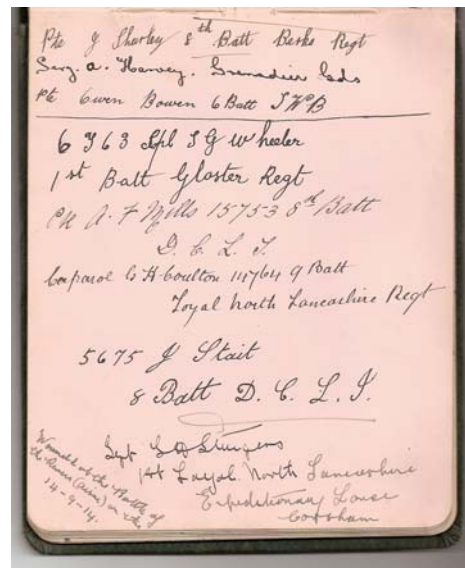 Pte J Shorley 8th Batt Berks Regt
Serg. A. Harvey. Grenadier Gds
Pte Owen Bowen 6 Batt SWB
6363 Lpl S G Wheeler
1st Batt Gloster Regt
Pte A. F Mills 15753 8th Batt
D. C. L. I.
Corparol G H Coulton 9 Batt
Loyal North Lancashire Regt
5675 J Stait
8 Batt D. C. L. I.
Sgt Sturgess
1st Loyal North Lancashire
Expeditionary Louse
Corsham
Wounded at the Battle of
the Rivers (Aisne) on the
14-9-14.